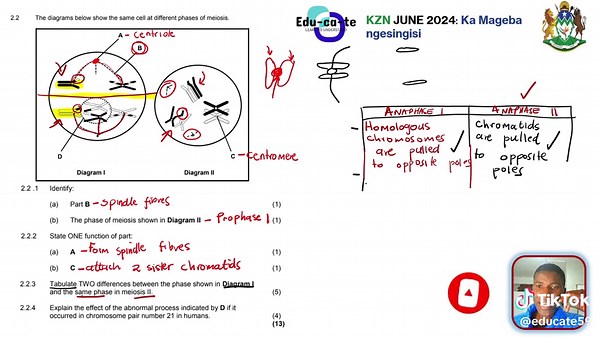 2.2 The diagrams below show the same cell at different phases of meiosis.
Edu-ca-te
KZN JUNE 2024: Ka Mageba
ngesingisi
A - centriole
B
D
C - centromere
Diagram I
Diagram II
2.2 .1 Identify:
(a) Part B - spindle fibres (1)
(b) The phase of meiosis shown in Diagram II - Prophase I (1)
2.2.2 State ONE function of part:
(a) A - Form spindle fibres (1)
(b) C - attach 2 sister chromatids (1)
2.2.3 Tabulate TWO differences between the phase shown in Diagram I
and the same phase in meiosis II. (5)
2.2.4 Explain the effect of the abnormal process indicated by D if it
occurred in chromosome pair number 21 in humans. (4)
(13)
ANAPHASE I ANAPHASE II
- Homologous
chromosomes
are pulled
to opposite poles
-
Chromatids
are pulled
to opposite
poles
TikTok
@educate59